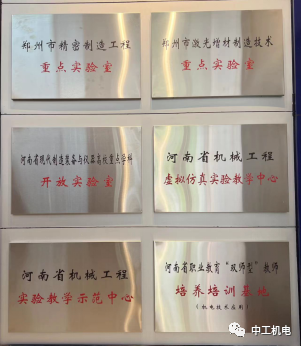 郑州市精密制造工程
重点实验室
郑州市激光增材制造技术
重点实验室
河南省现代制造装备与仪器高校重点学科
开放实验室
河南省机械工程
虚拟仿真实验教学中心
河南省机械工程
实验教学示范中心
河南省职业教育“双师型”教师
培养培训基地
（机电技术应用）
中工机电